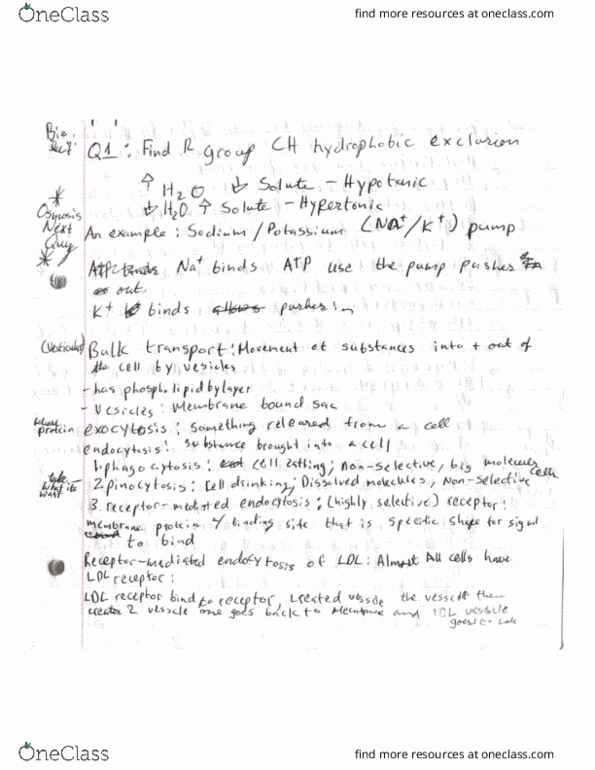 OneClass
find more resources at oneclass.com
Bio.
Q1: Find R group CH hydrophobic exclusion
↑ H2O ↓ Solute - Hypotonic
↓ H2O ↑ Solute - Hypertonic
* Osmosis Next Quiz *
An example: Sodium / Potassium (Na+/K+) pump
Na+ binds ATP use the pump pushes
out.
K+ binds pushes in
(Vesicular) Bulk transport: Movement of substances into + out of
the cell by vesicles
- has phospholipid bylayer
- Vesicles: Membrane bound sac
protein exocytosis: something released from a cell
endocytosis: substance brought into a cell
1. phagocytosis: cell eating; non-selective, big molecules cells
take what its want 2. pinocytosis: Cell drinking; Dissolved molecules, Non-selective
3. receptor-mediated endocytosis: (highly selective) receptor:
membrane protein w/ binding site that is specific shape for signal
to bind
Receptor-mediated endocytosis of LDL: Almost All cells have
LDL receptor:
LDL receptor bind to receptor, created vessicle the vessicle then
creates 2 vessicle one goes back to membrane and LDL vessicle
goes to
OneClass
find more resources at oneclass.com